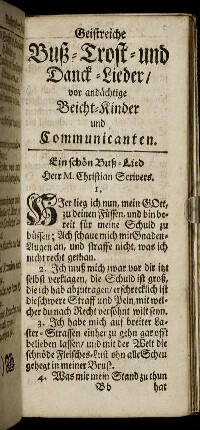 Geistreiche
Buß-Trost-und
Danck-Lieder/
vor andächtige
Beicht-Kinder
und
Communicanten.
Ein schön Buß-Lied
Herr M. Christian Scrivers.
1.
Hier lieg ich nun, mein GOtt,
zu deinen Füssen, und bin be-
reit für meine Schuld zu
büssen; Ach schaue mich mit Gnaden-
Augen an, und straffe nicht, was ich
nicht recht gethan.
2. Ich muß mich zwar vor dir itzt
selbst verklagen, die Schuld ist groß,
die ich hab abzutragen/ erschrecklich ist
die schwere Straff und Pein, mit wel-
cher du nach Recht versöhnt wilt seyn.
3. Ich habe mich auf breiter La-
ster-Strassen einher zu gehn gar offt
belieben lassen/ und mit der Welt die
schnöde Fleisches-Lust ohn alle Scheu
geheget in meiner Brust.
4. Was mir mein Stand zu thun
Bb hat